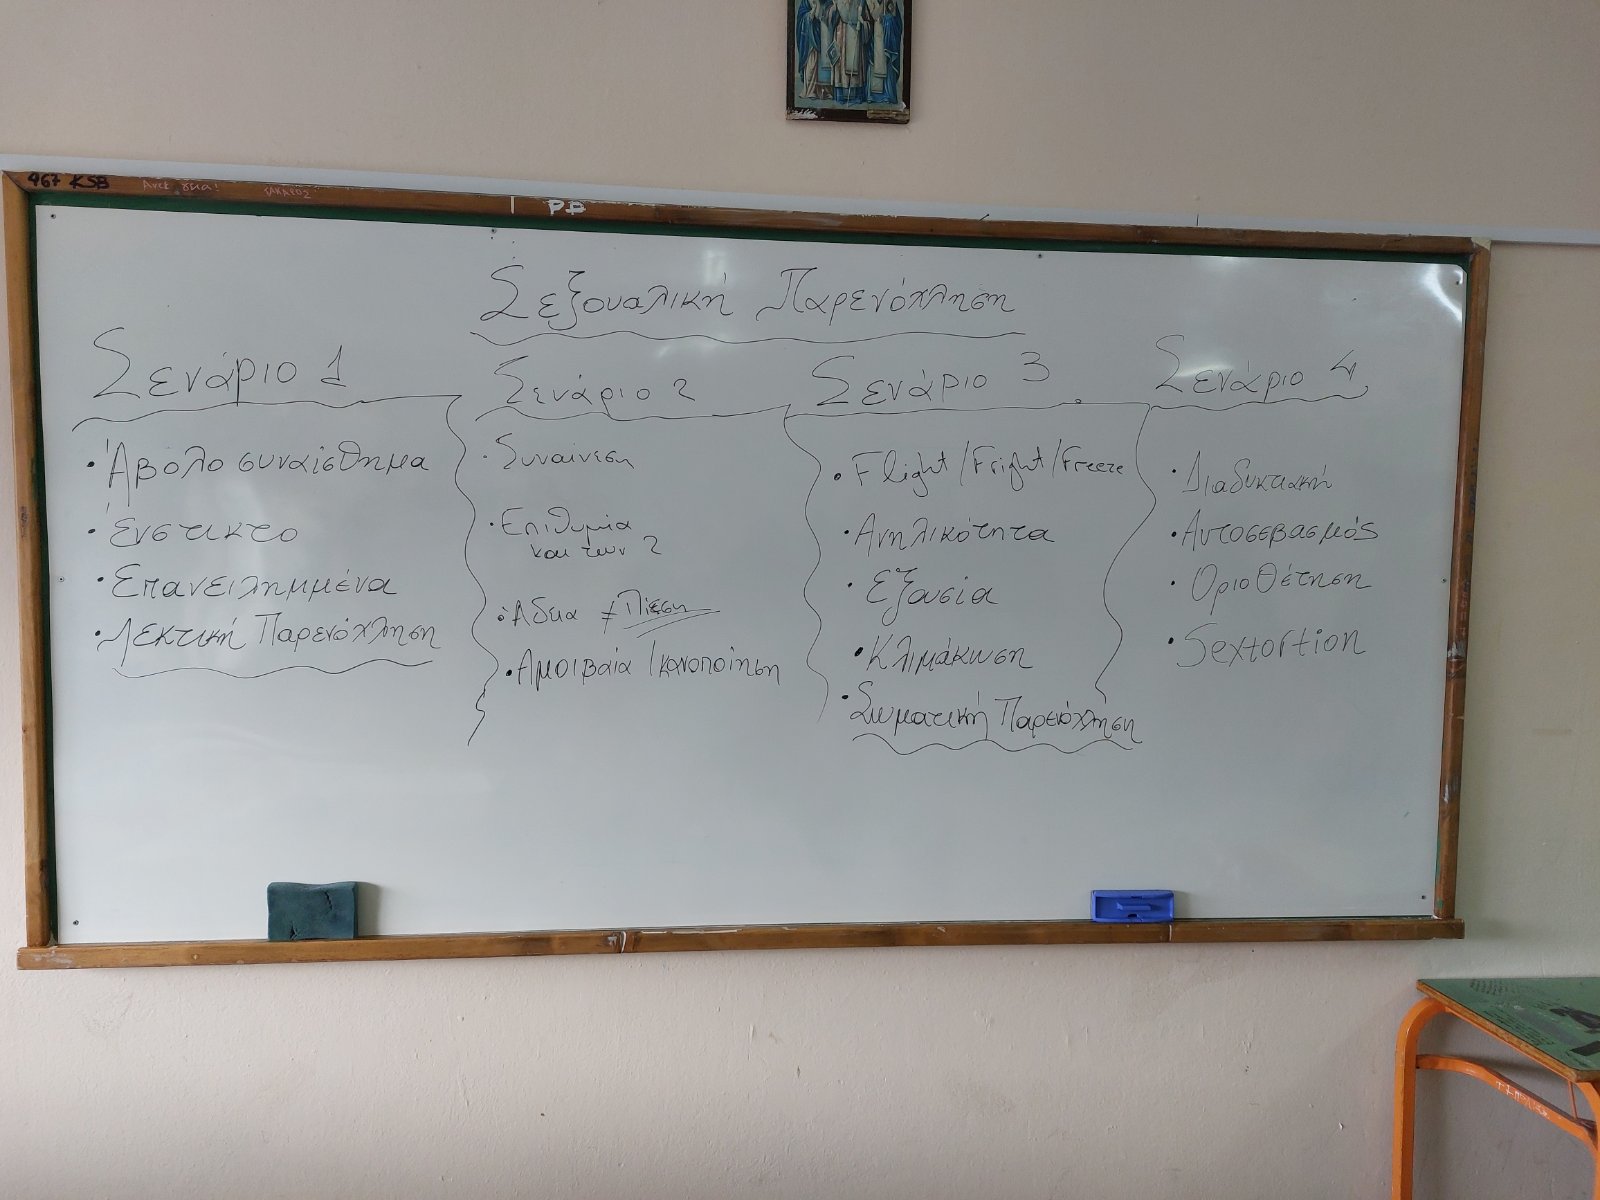 467 KSB
PB
Σεξουαλική Παρενόχληση
Σενάριο 1
• Άβολο συναίσθημα
• Ένστικτο
• Επανειλημμένα
• Λεκτική Παρενόχληση
Σενάριο 2
• Συναίνεση
• Επιθυμία
και των 2
• Άδεια ≠ Πίεση
• Αμοιβαία Ικανοποίηση
Σενάριο 3
• Flight/Fright/Freeze
• Ανηλικότητα
• Εξουσία
• Κλιμάκωση
• Σωματική Παρενόχληση
Σενάριο 4
• Διαδυκτιακή
• Αυτοσεβασμός
• Οριοθέτηση
• Sextortion